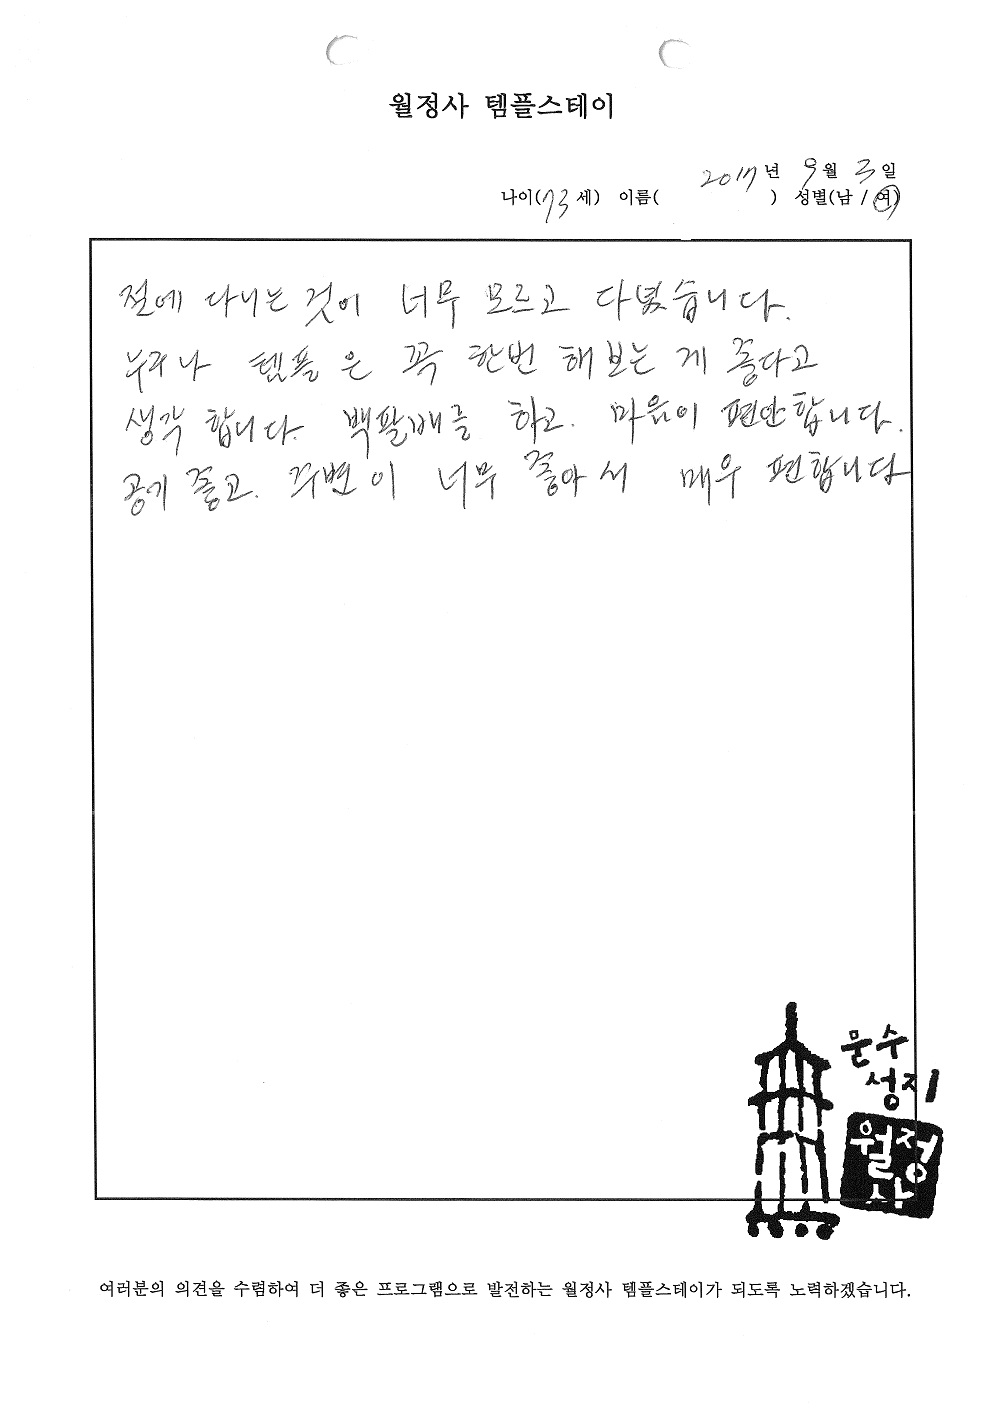 월정사 템플스테이
2017년 9월 3일
나이(73세) 이름( ) 성별(남 / 여)
절에 다니는 것이 너무 모르고 다녔습니다.
누구나 템플은 꼭 한번 해보는 게 좋다고
생각 합니다. 백팔배를 하고. 마음이 편안합니다.
공기 좋고. 주변이 너무 좋아서 매우 편합니다
문수
성지
월정
사
여러분의 의견을 수렴하여 더 좋은 프로그램으로 발전하는 월정사 템플스테이가 되도록 노력하겠습니다.